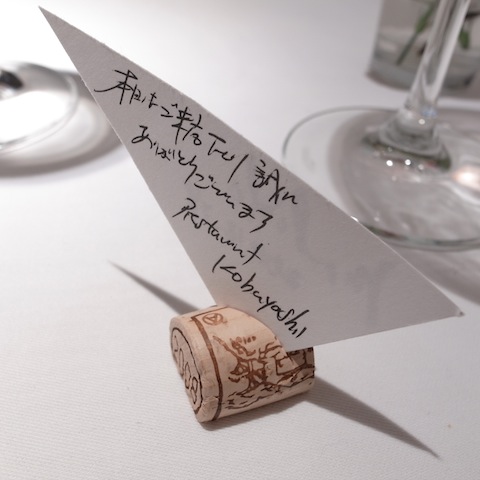 本日はご来店下さり誠に
ありがとうございます
Restaurant
Kobayashi
2008